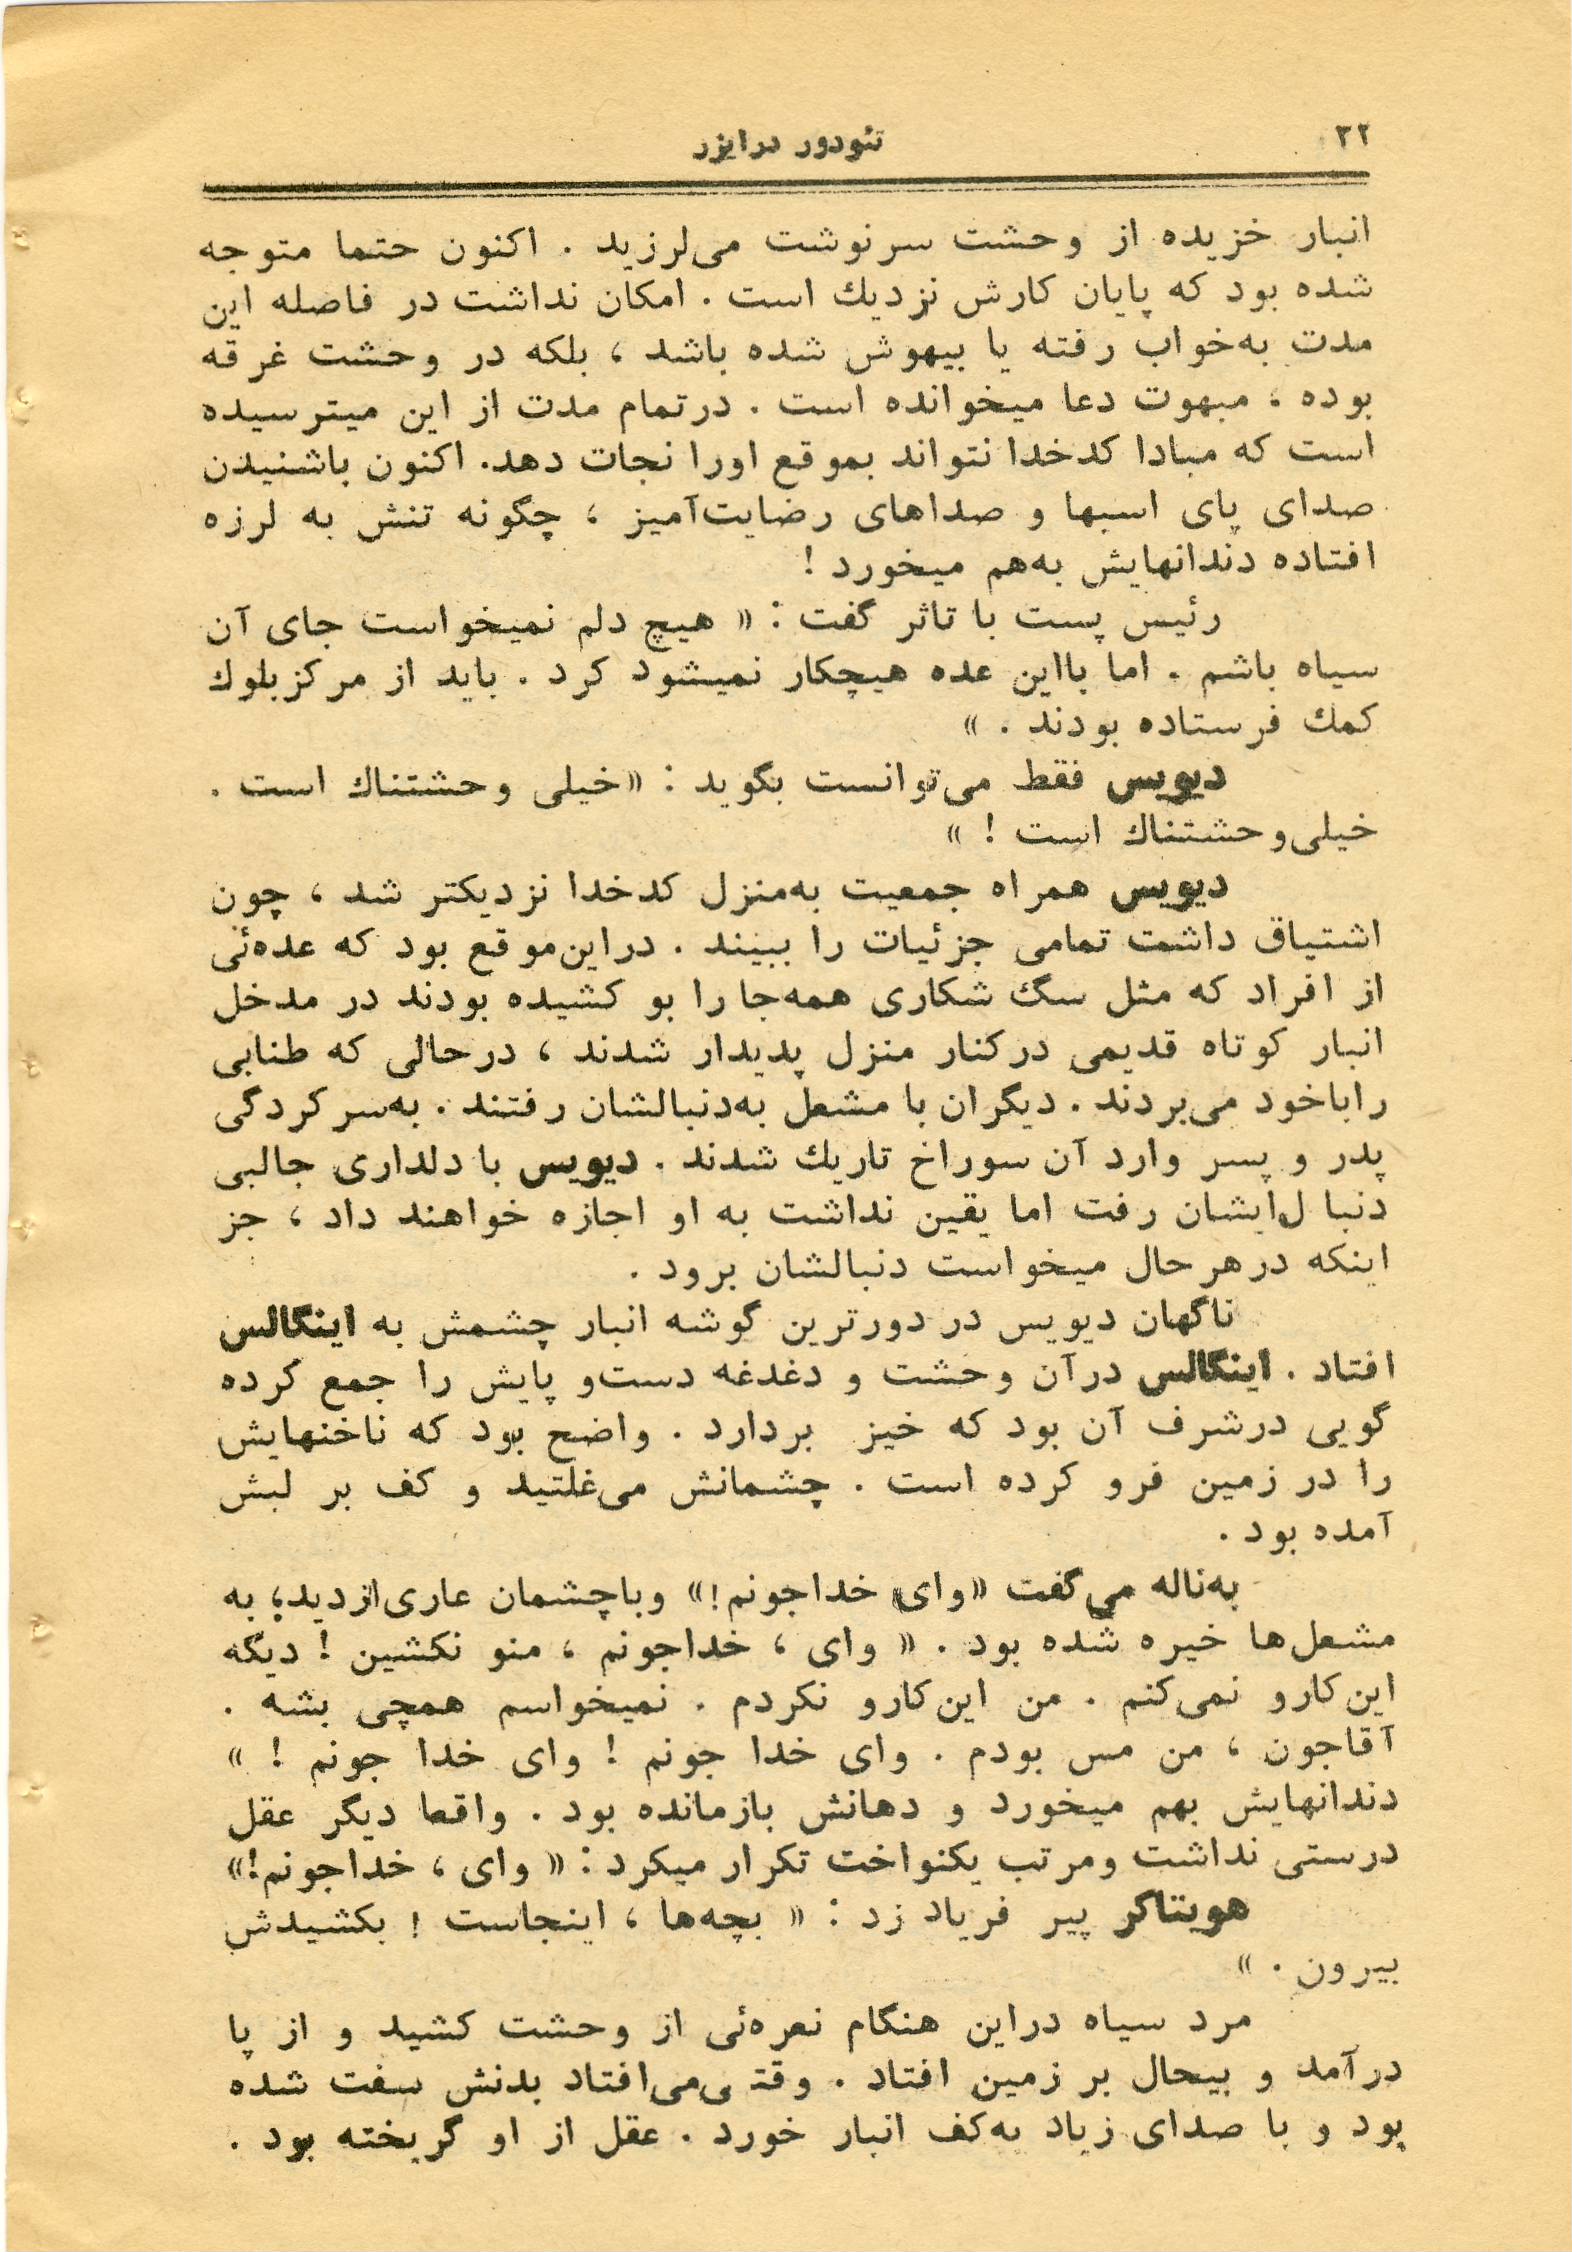 ۲۲
تئودور درایزر
انبار خزیده از وحشت سرنوشت می‌لرزید . اکنون حتما متوجه
شده بود که پایان کارش نزدیك است . امکان نداشت در فاصله این
مدت به‌خواب رفته یا بیهوش شده باشد ، بلکه در وحشت غرقه
بوده ، مبهوت دعا میخوانده است . درتمام مدت از این میترسیده
است که مبادا کدخدا نتواند بموقع اورا نجات دهد. اکنون باشنیدن
صدای پای اسبها و صداهای رضایت‌آمیز ، چگونه تنش به لرزه
افتاده دندانهایش به‌هم میخورد !
رئیس پست با تاثر گفت : « هیچ دلم نمیخواست جای آن
سیاه باشم . اما بااین عده هیچکار نمیشود کرد . باید از مرکزبلوك
کمك فرستاده بودند . »
دیویس فقط می‌توانست بگوید : «خیلی وحشتناك است .
خیلی‌وحشتناك است ! »
دیویس همراه جمعیت به‌منزل کدخدا نزدیکتر شد ، چون
اشتیاق داشت تمامی جزئیات را ببیند . دراین‌موقع بود که عده‌ئی
از افراد که مثل سگ شکاری همه‌جا را بو کشیده بودند در مدخل
انبار کوتاه قدیمی درکنار منزل پدیدار شدند ، درحالی که طنابی
راباخود می‌بردند . دیگران با مشعل به‌دنبالشان رفتند . به‌سرکردگی
پدر و پسر وارد آن سوراخ تاریك شدند . دیویس با دلداری جالبی
دنبا ل‌ایشان رفت اما یقین نداشت به او اجازه خواهند داد ، جز
اینکه درهرحال میخواست دنبالشان برود .
ناگهان دیویس در دورترین گوشه انبار چشمش به اینگالس
افتاد . اینگالس درآن وحشت و دغدغه دست‌و پایش را جمع کرده
گویی درشرف آن بود که خیز بردارد . واضح بود که ناخنهایش
را در زمین فرو کرده است . چشمانش می‌غلتید و کف بر لبش
آمده بود .
به‌ناله می‌گفت «وای خداجونم!» وباچشمان عاری‌ازدید، به
مشعل‌ها خیره شده بود . « وای ، خداجونم ، منو نکشین ! دیگه
این‌کارو نمی‌کنم . من این‌کارو نکردم . نمیخواسم همچی بشه .
آقاجون ، من مس بودم . وای خدا جونم ! وای خدا جونم ! »
دندانهایش بهم میخورد و دهانش بازمانده بود . واقعا دیگر عقل
درستی نداشت ومرتب یکنواخت تکرار میکرد : « وای ، خداجونم!»
هویتاکر پیر فریاد زد : « بچه‌ها ، اینجاست ! بکشیدش
بیرون . »
مرد سیاه دراین هنگام نعره‌ئی از وحشت کشید و از پا
درآمد و بیحال بر زمین افتاد . وقتی‌می‌افتاد بدنش سفت شده
بود و با صدای زیاد به‌کف انبار خورد . عقل از او گریخته بود .